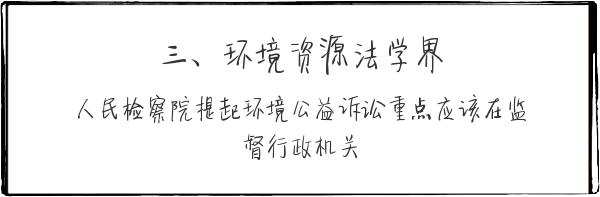 三、环境资源法学界
人民检察院提起环境公益诉讼重点应该在监
督行政机关